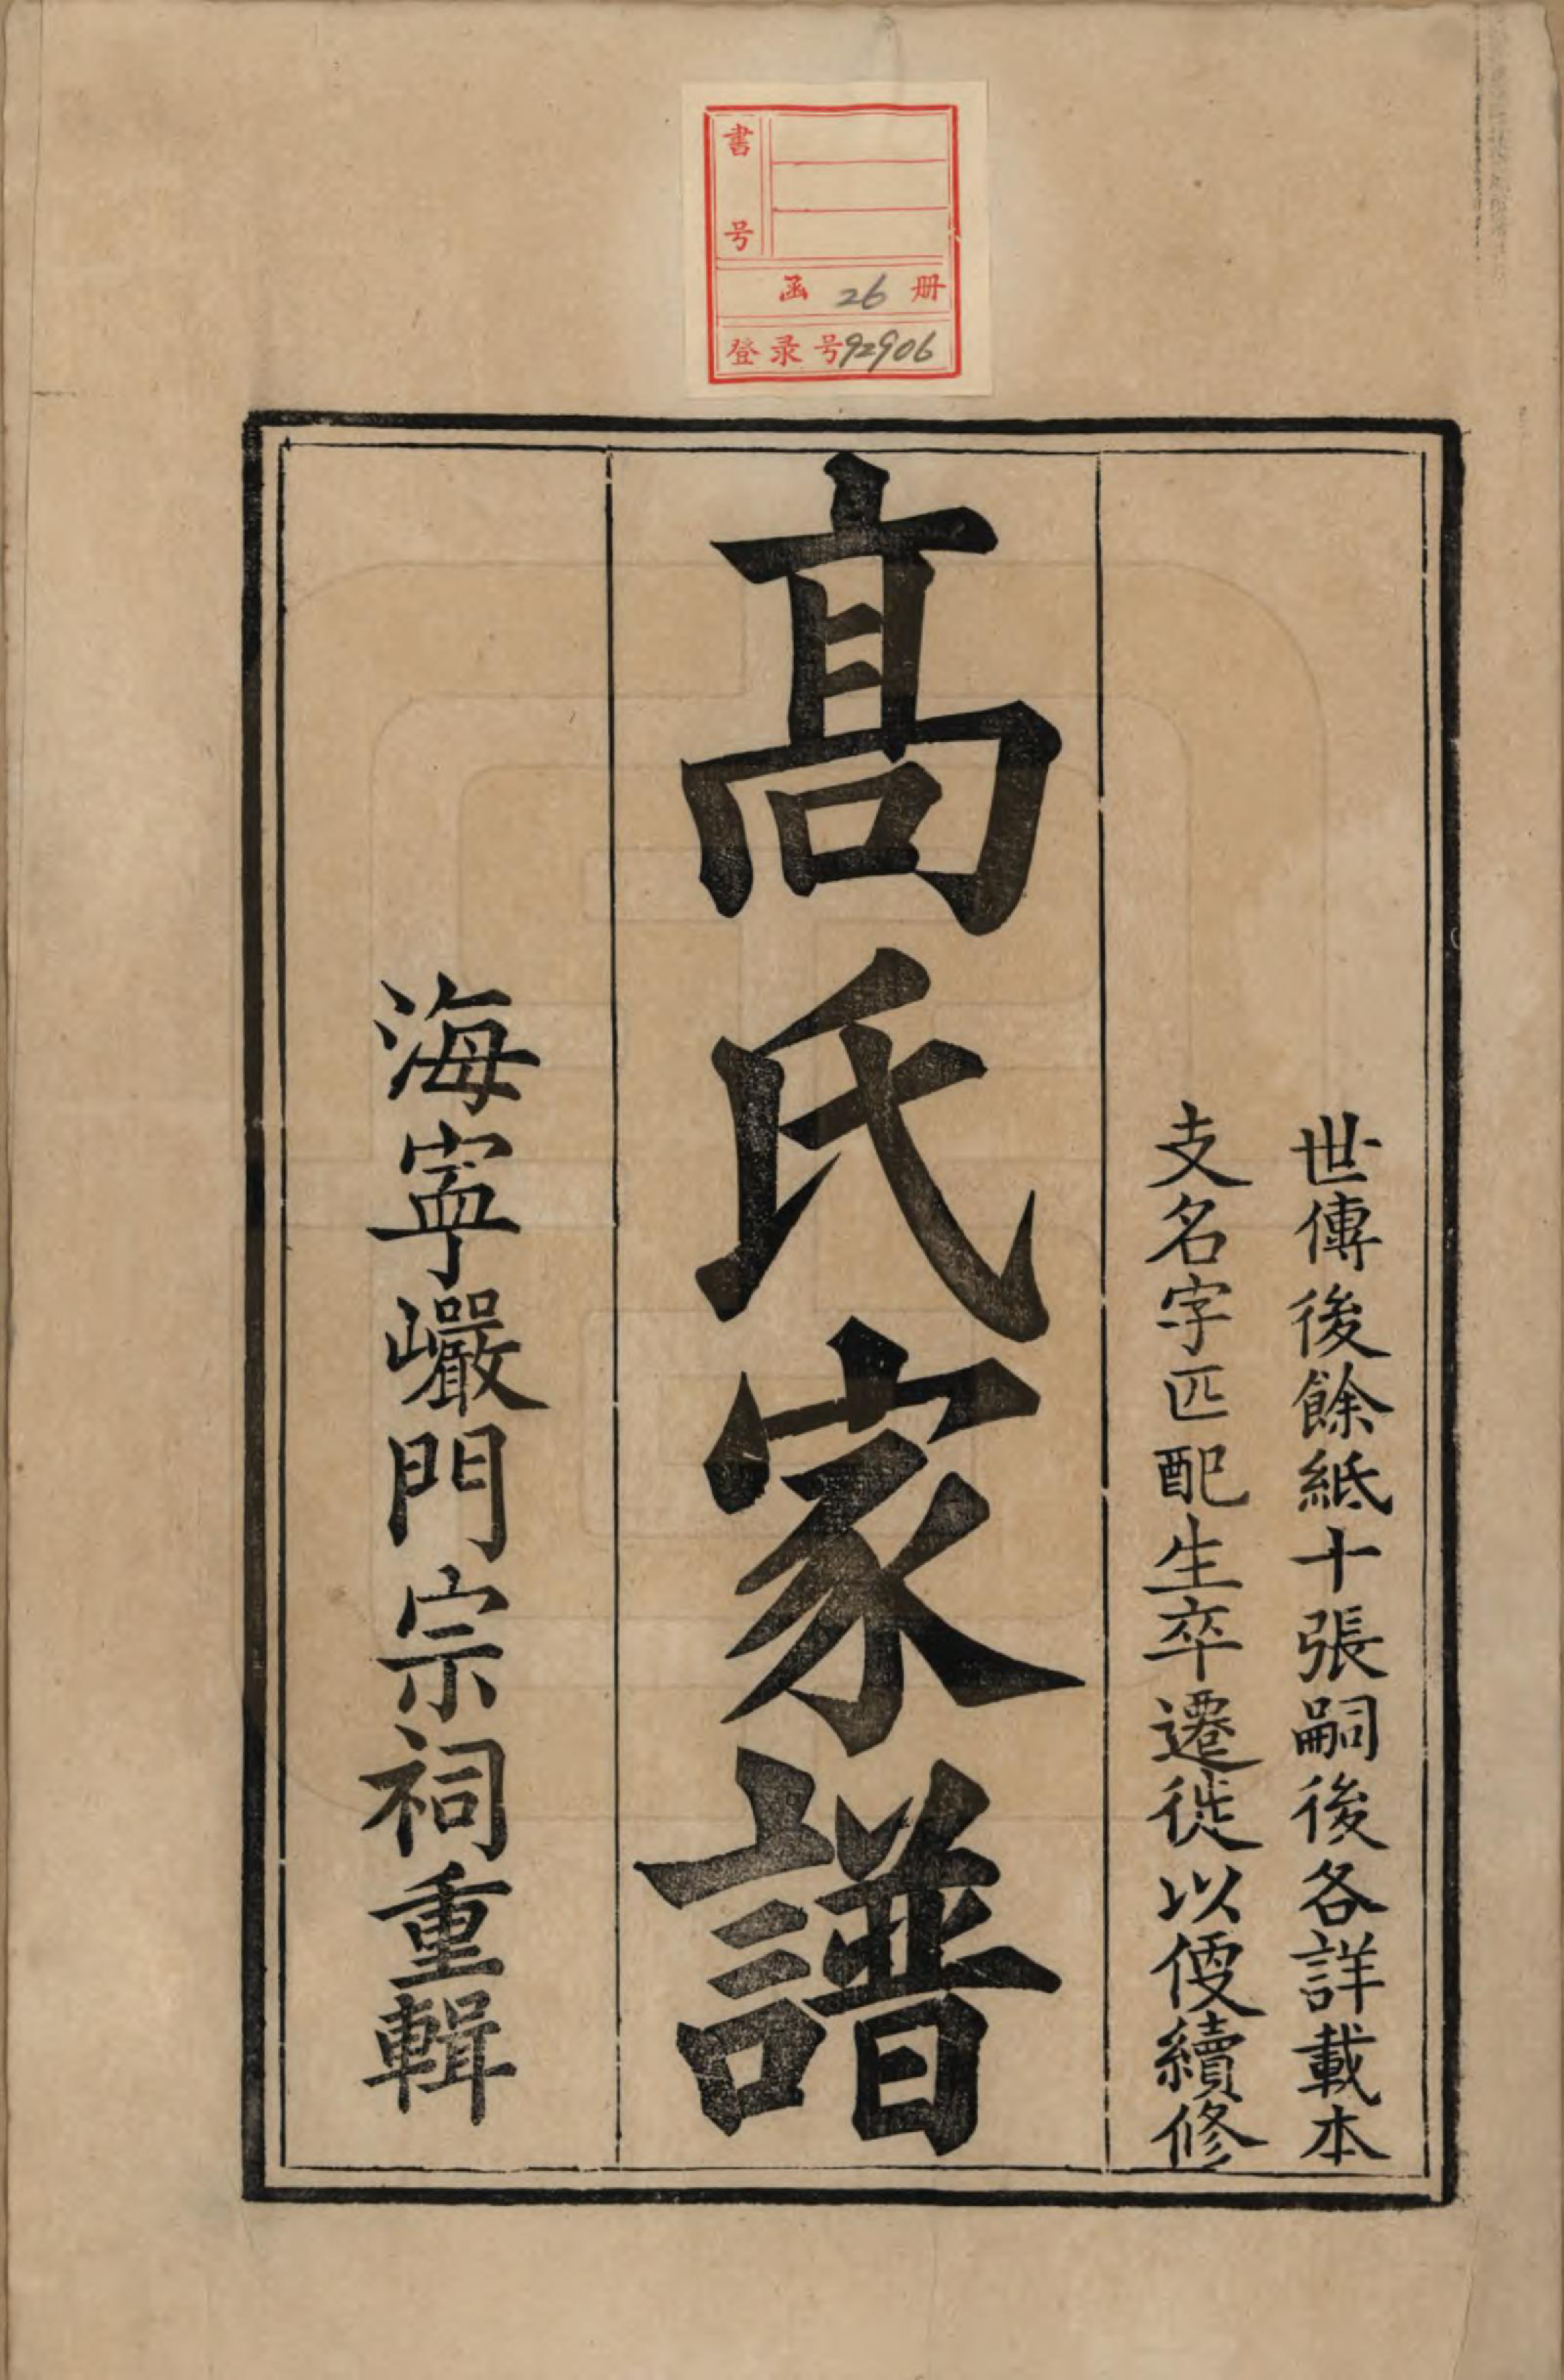 書号
函 26 册
登录号92906
世傳後餘紙十張嗣後各詳載本
支名字匹配生卒遷徙以便續修
髙氏家譜
海寧巖門宗祠重輯